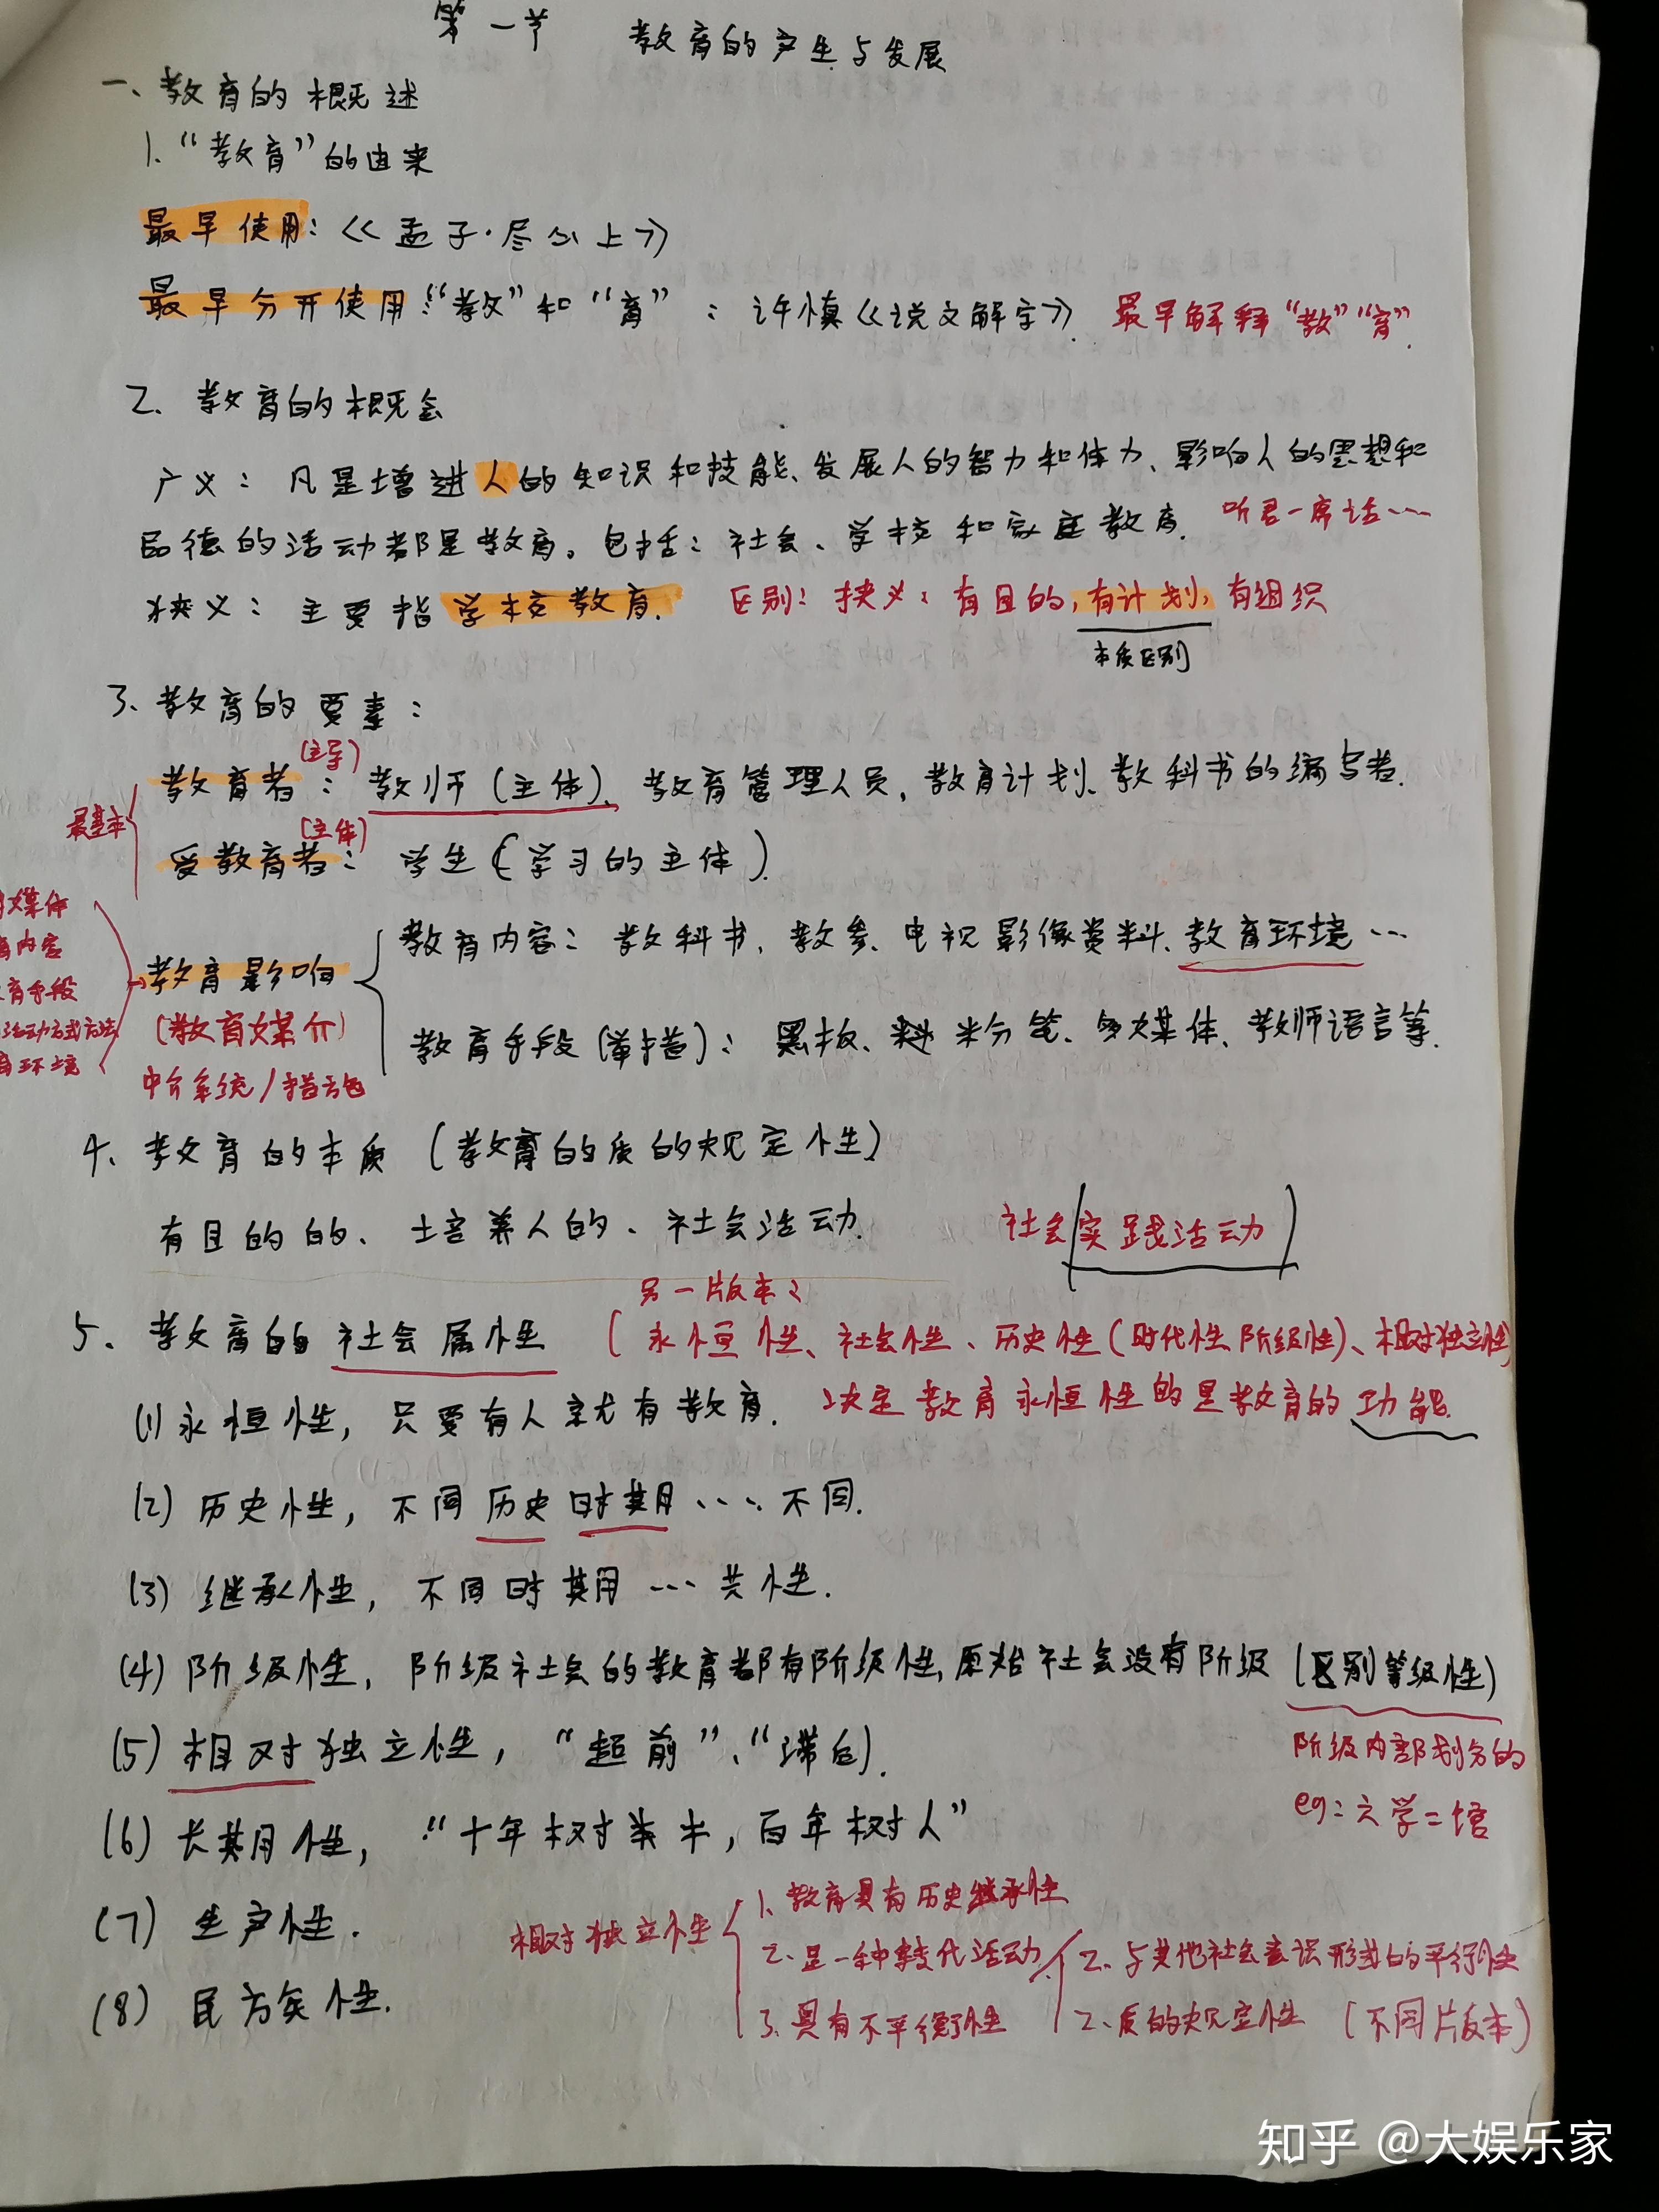 第一节 教育的产生与发展
一、教育的概述
1. “教育”的由来
最早使用：《孟子·尽心上》
最早分开使用“教”和“育”：许慎《说文解字》 最早解释“教”“育”.
2. 教育的概念
广义：凡是增进人的知识和技能、发展人的智力和体力、影响人的思想和
品德的活动都是教育。包括：社会、学校和家庭教育. 听君一席话…
狭义：主要指学校教育. 区别：狭义：有目的,有计划,有组织
本质区别
3、教育的要素：
(主导)
教育者：教师(主体)、教育管理人员,教育计划、教科书的编写者.
最基本
(主体)
受教育者：学生(学习的主体).
媒体
内容
育手段
活动方式方法
育环境
教育内容：教科书,教参、电视影像资料、教育环境…
教育影响
(教育媒介)
教育手段(举措)：黑板、粉笔、多媒体、教师语言等.
中介系统/措施
4、教育的本质(教育的质的规定性)
有目的的、培养人的、社会活动. 社会(实践活动)
另一版本：
5、教育的社会属性 (永恒性、社会性、历史性(时代性、阶级性)、相对独立性
(1) 永恒性,只要有人就有教育. 决定教育永恒性的是教育的功能.
(2) 历史性,不同历史时期…不同.
(3) 继承性,不同时期…共性.
(4) 阶级性,阶级社会的教育都有阶级性,原始社会没有阶级 (区别等级性)
阶级内部划分的
(5) 相对独立性,“超前”、“滞后”.
eg：六学二馆
(6) 长期性,“十年树木,百年树人”
(7) 生产性.
(8) 民族性.
相对独立性
1、教育具有历史继承性
2、是一种转化活动
3、具有不平衡性
2、与其他社会意识形式的平行性
2、质的规定性 (不同版本)
知乎 @大娱乐家